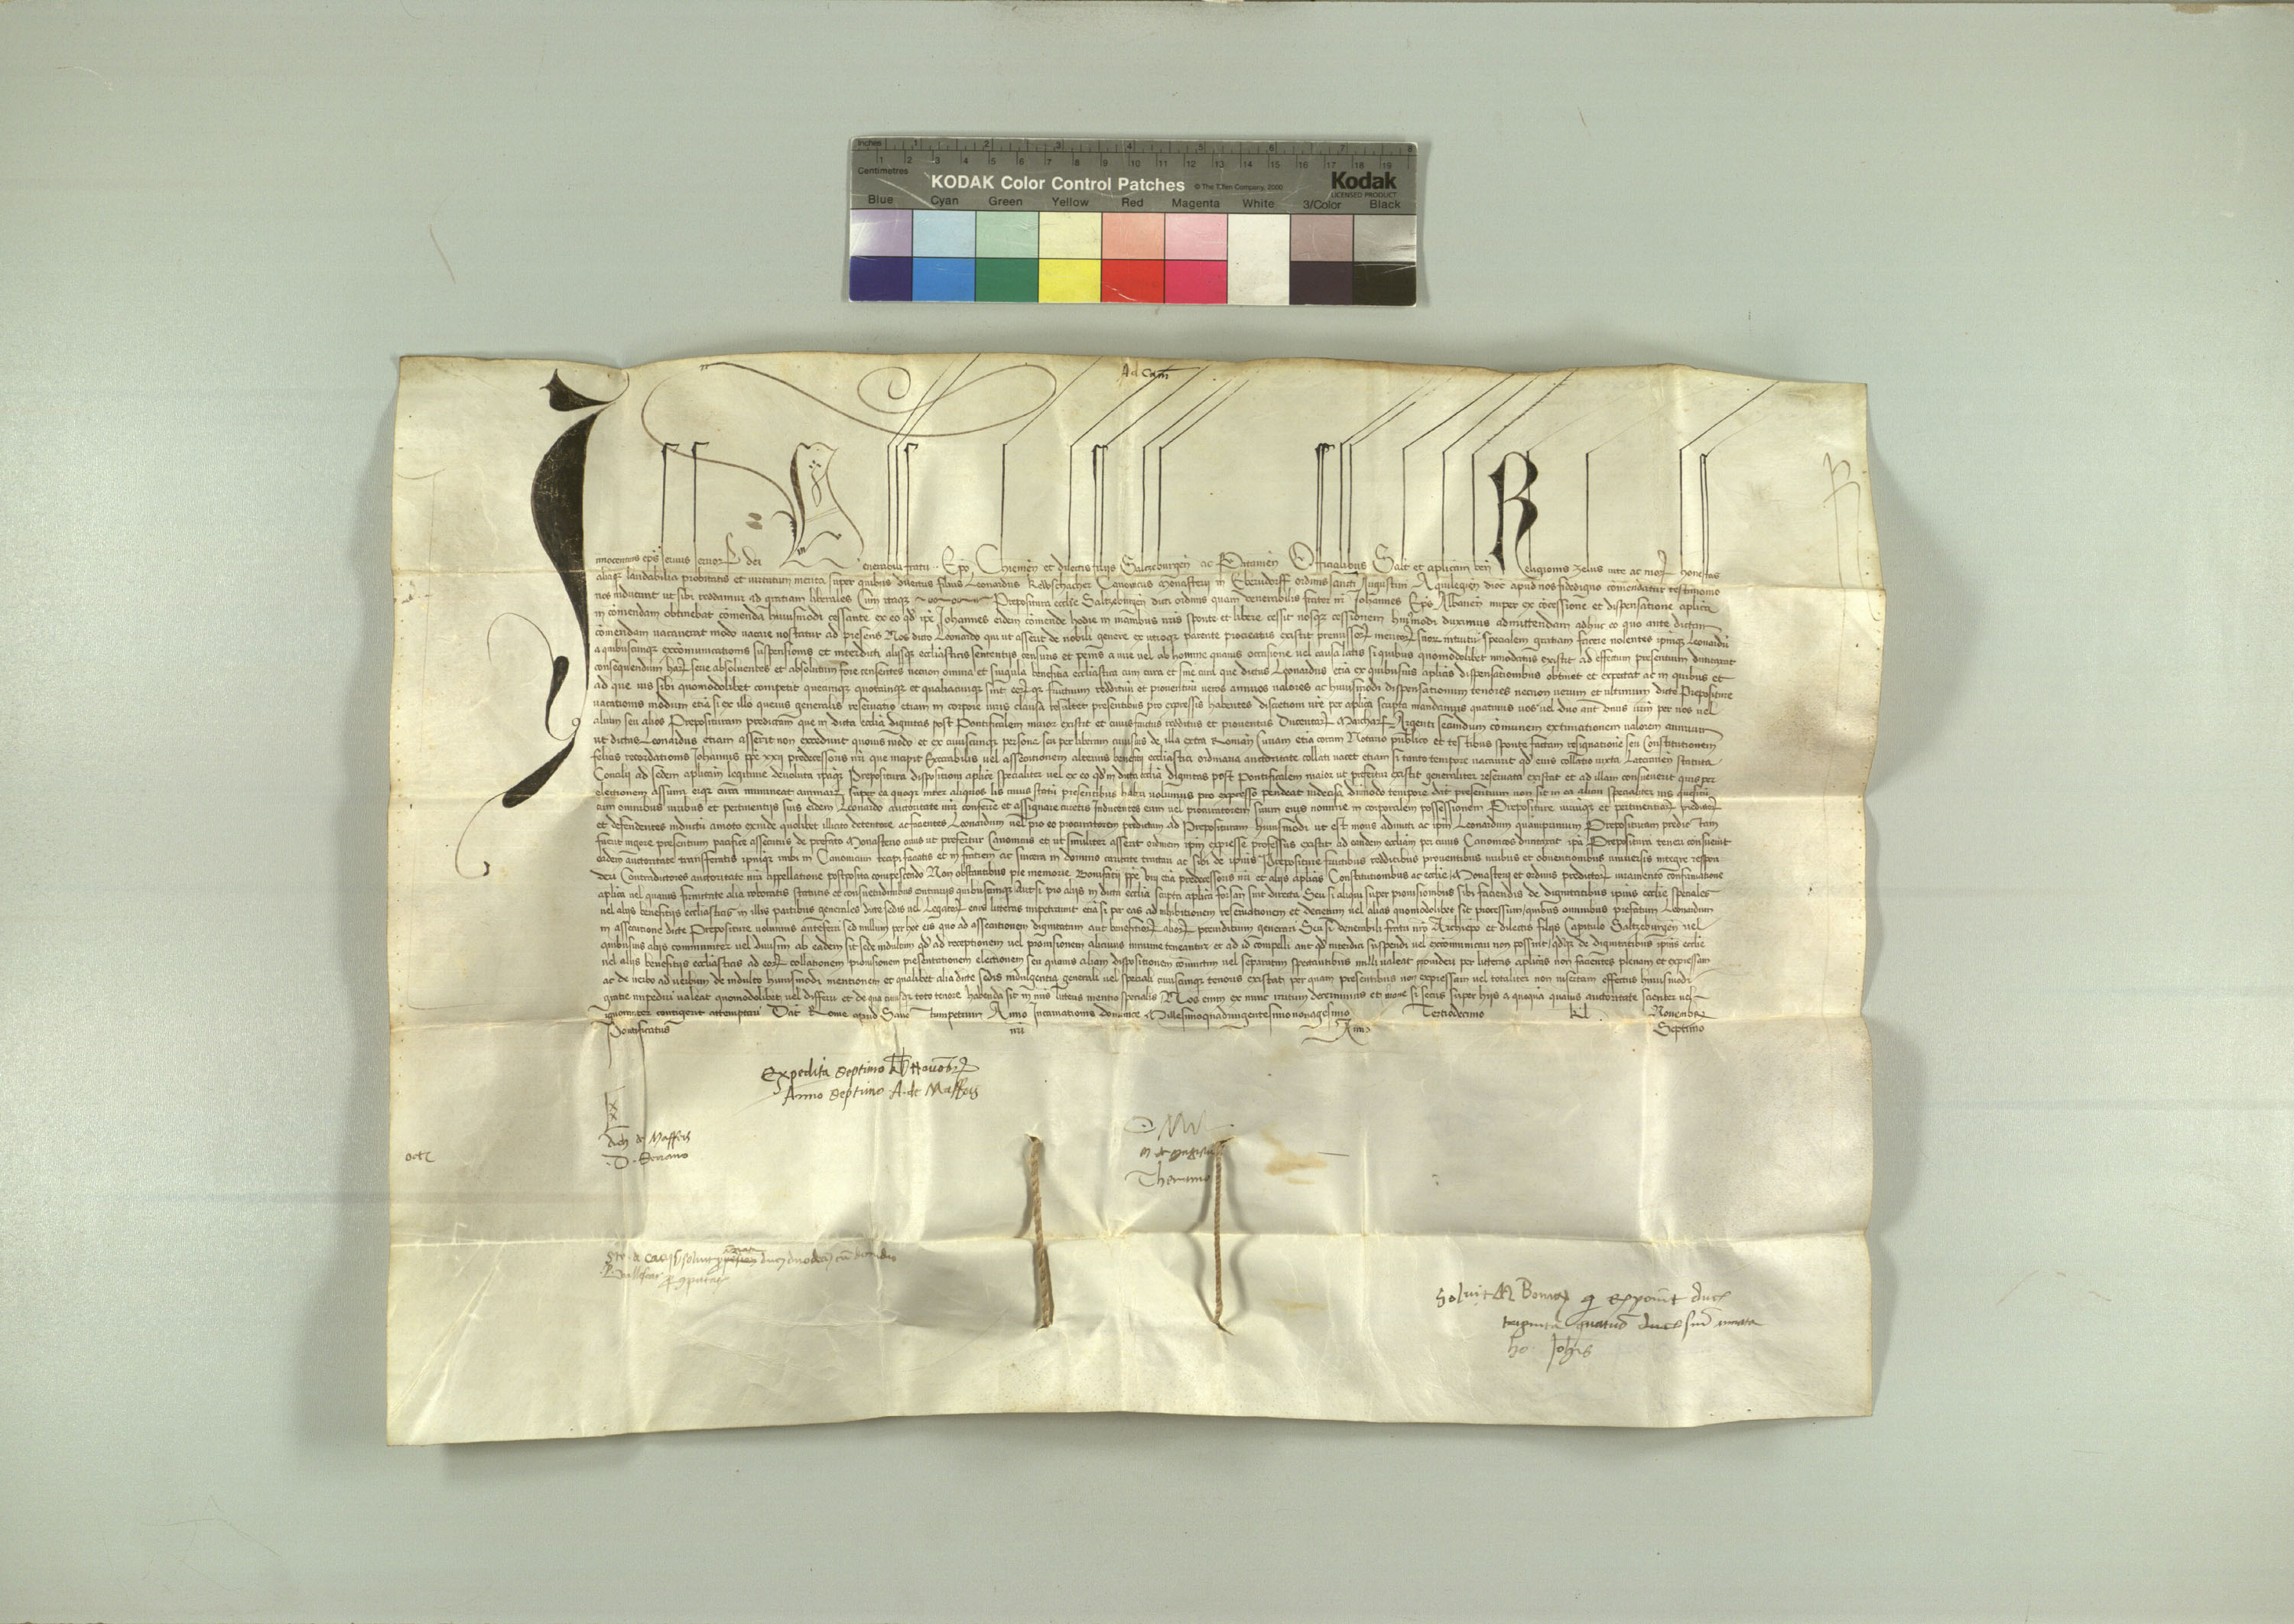 Inches 1 2 3 4 5 6 7 8
1 2 3 4 5 6 7 8 9 10 11 12 13 14 15 16 17 18 19
Centimetres
KODAK Color Control Patches © The Tiffen Company, 2000 Kodak
LICENSED PRODUCT
Blue Cyan Green Yellow Red Magenta White 3/Color Black
Ad cam̄
R
Innocentius ep̄s servus servoꝝ dei Venerabili fratri Ep̄o Chiemen̄ et dilectis filijs Saltzeburgen̄ ac Officialibus Salt et aplicam ben̄ Religionis zelus vite ac moꝝ honestas
aliaqꝫ laudabilia probitatis et virtutum merita super quibus dilectus filius Leonardus Canonicus Monasterij in Eberndorff ordinis sancti Augustini Aquilegien̄ dioc̄ apud nos fidedigno comendatur testimonio
nos inducunt ut sibi reddamur ad gratiam liberales Cum itaqꝫ Prepositura eccl̄ie Saltzeburgen̄ dicti ordinis quam venerabilis frater nr̄ Johannes Ep̄s Albanen̄ nuper ex cōcessione et dispensatione aplica
in comendam obtinebat comenda huiusmodi cessante ex eo qd̄ ip̄e Johannes eidem comende hodie in manibus nr̄is sponte et libere cessit nosqꝫ cessionem huiusmodi duximus admittendam adhuc eo quo ante dictam
comendam vacaverat modo vacare noscatur ad presens Nos dicto Leonardo qui ut asserit de nobili genere ex utroqꝫ parente procreatus existit premissoꝝ meritoꝝ suoꝝ intuitu specialem gratiam facere volentes ipm̄qꝫ Leonardū
a quibuscunqꝫ excomunicationis suspensionis et interdicti alijsqꝫ ecclesiasticis sententijs censuris et penis a iure vel ab homine quavis occasione vel causa latis si quibus quomodolibet innodatus existit ad effectum presentium dumtaxat
consequendum haꝝ serie absolventes et absolutum fore censentes necnon omnia et singula beneficia ecclesiastica cum cura et sine cura que dictus Leonardus etiā ex quibusvis aplicis dispensationibus obtinet et expectat ac in quibus et
ad que ius sibi quomodolibet competit quecunqꝫ quotcunqꝫ et qualiacunqꝫ sint eoꝝqꝫ fructuum reddituū et proventuū veros annuos valores ac huiusmodi dispensationum tenores necnon verum et ultimum dicte Prepositure
vacationis modum etiā si ex illo quevis generalis reservatio etiam in corpore iuris clausa resultet presentibus pro expressis habentes discretioni vr̄e per aplica scripta mandamus quatinus vos vel duo aut unus vr̄m per vos vel
alium seu alios Preposituram predictam que in dicta eccl̄ia dignitas post Pontificalem maior existit et cuius fructus redditus et proventus Ducentaꝝ Marchaꝝ Argenti secundum cōmunem extimationem valorem annuum
ut dictus Leonardus etiam asserit non excedunt quovis modo et ex cuiuscunqꝫ persone seu per liberam cuiusvis de illa extra Romanā Curiam etiā coram Notario publico et testibus sponte factam resignationē seu Constitutionem
felicis recordationis Johannis pp̄e xxij predecessoris nr̄i que incipit Execrabilis vel assecutionem alterius beneficij ecclesiastici ordinaria auctoritate collati vacet etiam si tanto tempore vacaverit qd̄ eius collatio iuxta Lateranen̄ statuta
Concilij ad sedem aplicam legitime devoluta ipaqꝫ Prepositura dispositioni aplice specialiter vel ex eo qd̄ in dicta eccl̄ia dignitas post Pontificalem maior ut prefertur existit generaliter reservata existat et ad illam consueverit quis per
electionem assumi eiqꝫ cura immineat animaꝝ super ea quoqꝫ inter aliquos lis cuius statū presentibus haberi volumus pro expresso pendeat indecisa dūmodo tempore dat̄ presentium non sit in ea alicui specialiter ius quesitū
cum omnibus iuribus et pertinentijs suis eidem Leonardo auctoritate nr̄a conferre et assignare curetis Inducentes eum vel procuratorem suum eius nomine in corporalem possessionem Prepositure iuriumqꝫ et pertinentiaꝝ predictaꝝ
et defendentes inductū amoto exinde quolibet illicito detentore ac facientes Leonardum vel pro eo procuratorem predictum ad Preposituram huiusmodi ut est moris admitti ac ipm̄ Leonardum quamprimum Preposituram predictam
fuerit vigore presentium pacifice assecutus de prefato Monasterio cuius ut prefertur Canonicus et ut similiter asserit ordinem ipm̄ expresse professus existit ad eandem eccl̄iam per cuius Canonicos dumtaxat ipā Prepositura teneri consuevit
eadem auctoritate transferatis ipmqꝫ inibi in Canonicum recipi faciatis et in fratrem ac sincera in domino caritate tractari ac sibi de ipius Prepositure fructibus redditibus proventibus iuribus et obventionibus universis integre respon-
deri Contradictores auctoritate nr̄a appellatione postposita compescendo Non obstantibus pie memorie Bonifatij pp̄e viij etiā predecessoris nr̄i et alijs aplicis Constitutionibus ac eccl̄ie Monasterij et ordinis predictoꝝ iuramento confirmatione
aplica vel quavis firmitate alia roboratis statutis et consuetudinibus contrarijs quibuscunqꝫ Aut si pro alijs in dicta eccl̄ia scripta aplica forsan sint directa Seu si aliqui super provisionibus sibi faciendis de dignitatibus ipius eccl̄ie speciales
vel alijs beneficijs ecclesiasticis in illis partibus generales dicte sedis vel Legatoꝝ eius litteras impetrarint etiā si per eas ad inhibitionem reservationem et decretum vel alias quomodolibet sit processum quibus omnibus prefatum Leonardum
in assecutione dicte Prepositure volumus anteferri sed nullum per hoc eis quo ad assecutionem dignitatum aut beneficioꝝ alioꝝ preiudicium generari Seu si venerabili fratri nr̄o Archiep̄o et dilectis filijs Capitulo Saltzeburgen̄ vel
quibusvis alijs communiter vel divisim ab eadem sit sede indultum qd̄ ad receptionem vel provisionem alicuius minime teneantur et ad id compelli aut qd̄ interdici suspendi vel excomunicari non possint qd̄qꝫ de dignitatibus ipius eccl̄ie
vel alijs beneficijs ecclesiasticis ad eoꝝ collationem provisionem presentationem electionem seu quamvis aliam dispositionem cōiunctim vel separatim spectantibus nulli valeat provideri per litteras aplicas non facientes plenam et expressam
ac de verbo ad verbum de indulto huiusmodi mentionem et qualibet alia dicte sedis indulgentia generali vel speciali cuiuscunqꝫ tenoris existat per quam presentibus non expressam vel totaliter non insertam effectus huiusmodi
gratie impediri valeat quomodolibet vel differri et de qua cuiusqꝫ toto tenore habenda sit in nr̄is litteris mentio specialis Nos enim ex nunc irritum decernimus et inane si secus super hijs a quoqꝫ quavis auctoritate scienter vel
ignoranter contigerit attemptari Dat̄ Rome apud Sanctum petrum Anno Incarnationis dominice Millesimoquadringentesimononagesimo Tertiodecimo kl̄ Novembꝝ
Pontificatus nr̄i Anno Septimo
Expedita septimo kl̄ Novēbr̄
Anno septimo A. de Maffeis
xx
Ach̄ de Maffeis
D. Serrano
octꝛ
Solvit
triginta quatuor
Jo̅h̅is